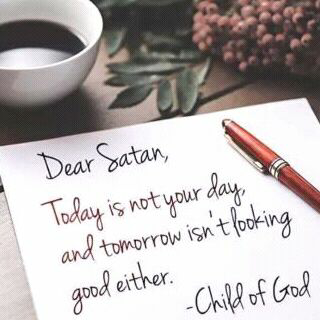 Dear Satan,
Today is not your day,
and tomorrow isn't looking
good either.
-Child of God